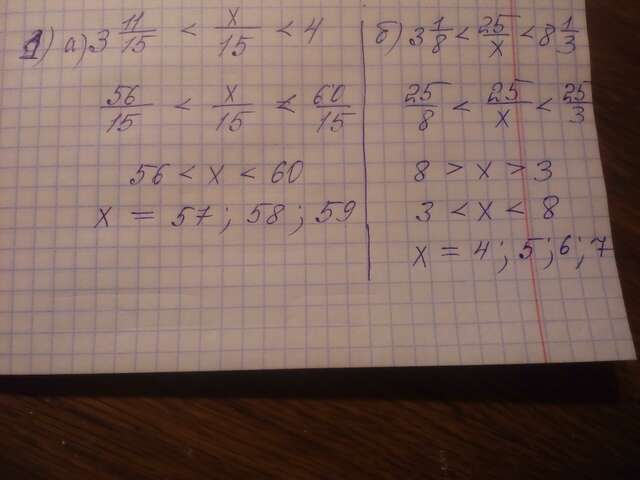 1) а) 3 11/15 < x/15 < 4
56/15 < x/15 < 60/15
56 < x < 60
x = 57; 58; 59
б) 3 1/8 < 25/x < 8 1/3
25/8 < 25/x < 25/3
8 > x > 3
3 < x < 8
x = 4; 5; 6; 7